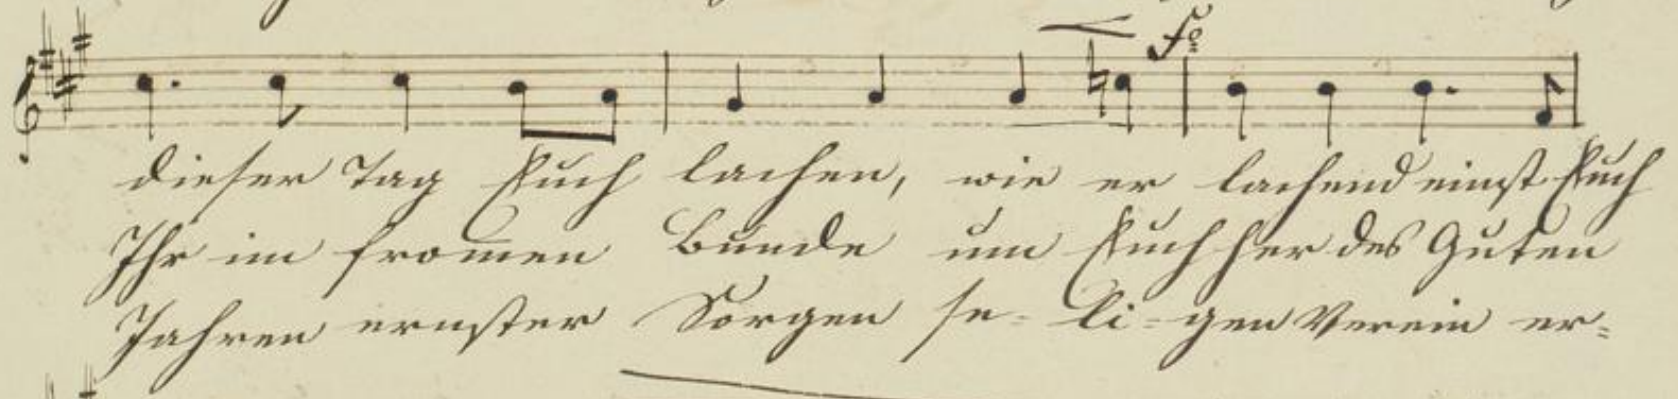 fo
dieser Tag Euch lachen, wie er lachend einst Euch
Ihr im from̅en Bunde um Euch her des Guten
Jahren ernster Sorgen se- li- gen Verein er=